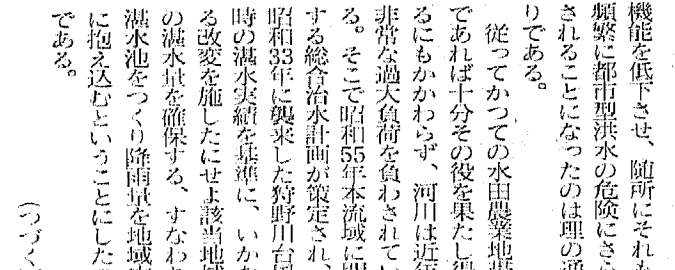 機能を低下させ、随所にそれも
頻繁に都市型洪水の危険にさら
されることになったのは理の通
りである。
従ってかつての水田農業地帯
であれば十分その役を果たし得
るにもかかわらず、河川は近年
非常な過大負荷を負わされてい
る。そこで昭和55年本流域に
する総合治水計画が策定され、
昭和33年に襲来した狩野川台風
時の湛水実績を基準に、いかな
る改変を施したにせよ該当地域
の湛水量を確保する、すなわち
湛水池をつくり降雨量を地域内
に抱え込むということにした
である。
(つづく